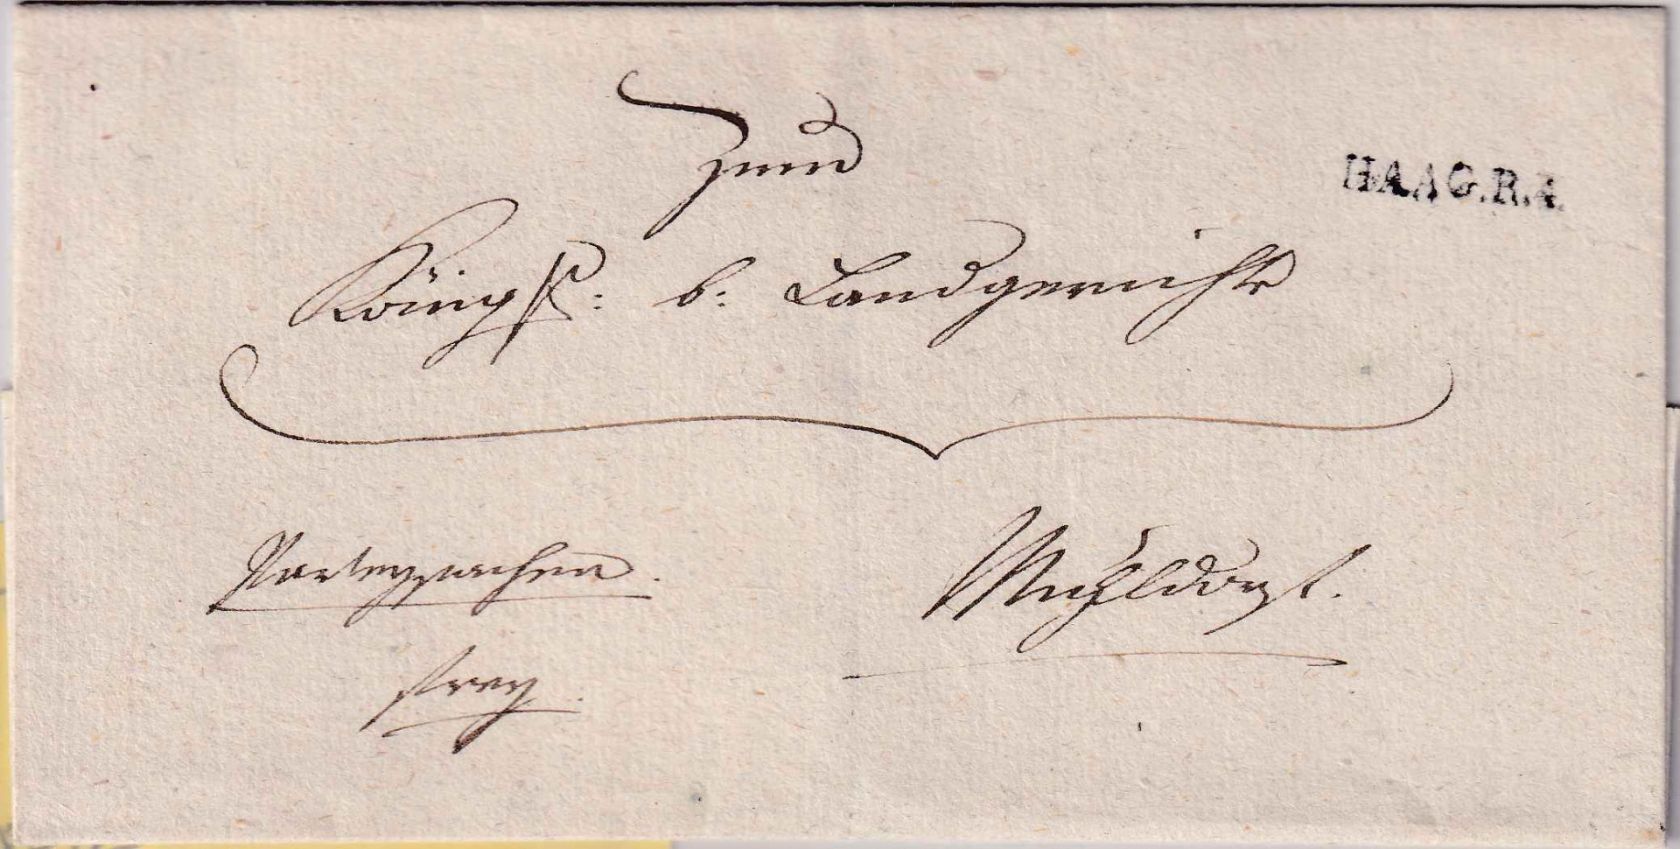 Zum
HAAG.R.4.
Königl: b: Landgericht
Partheysachen.
Mühldorf.
frey